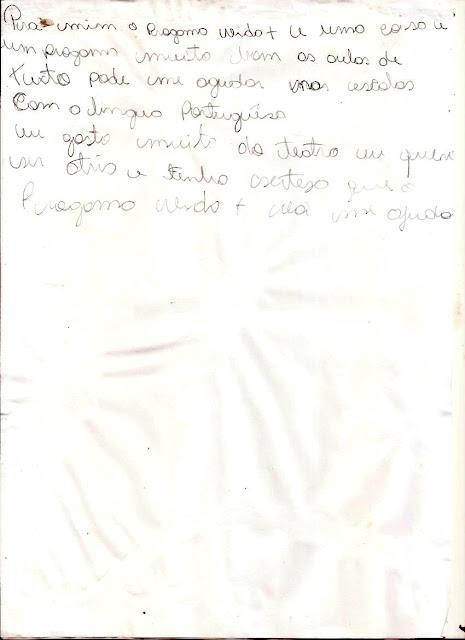 Para mim o Progama verdo + e uma coisa e
um progama muito bom as aulas de
texto pode me ajudar nas escolas
Com a lingua Portuguesa
eu gosto muito do teatro eu quero
ser atris e tenho certeza que o
Progama verdo + vai me ajuda